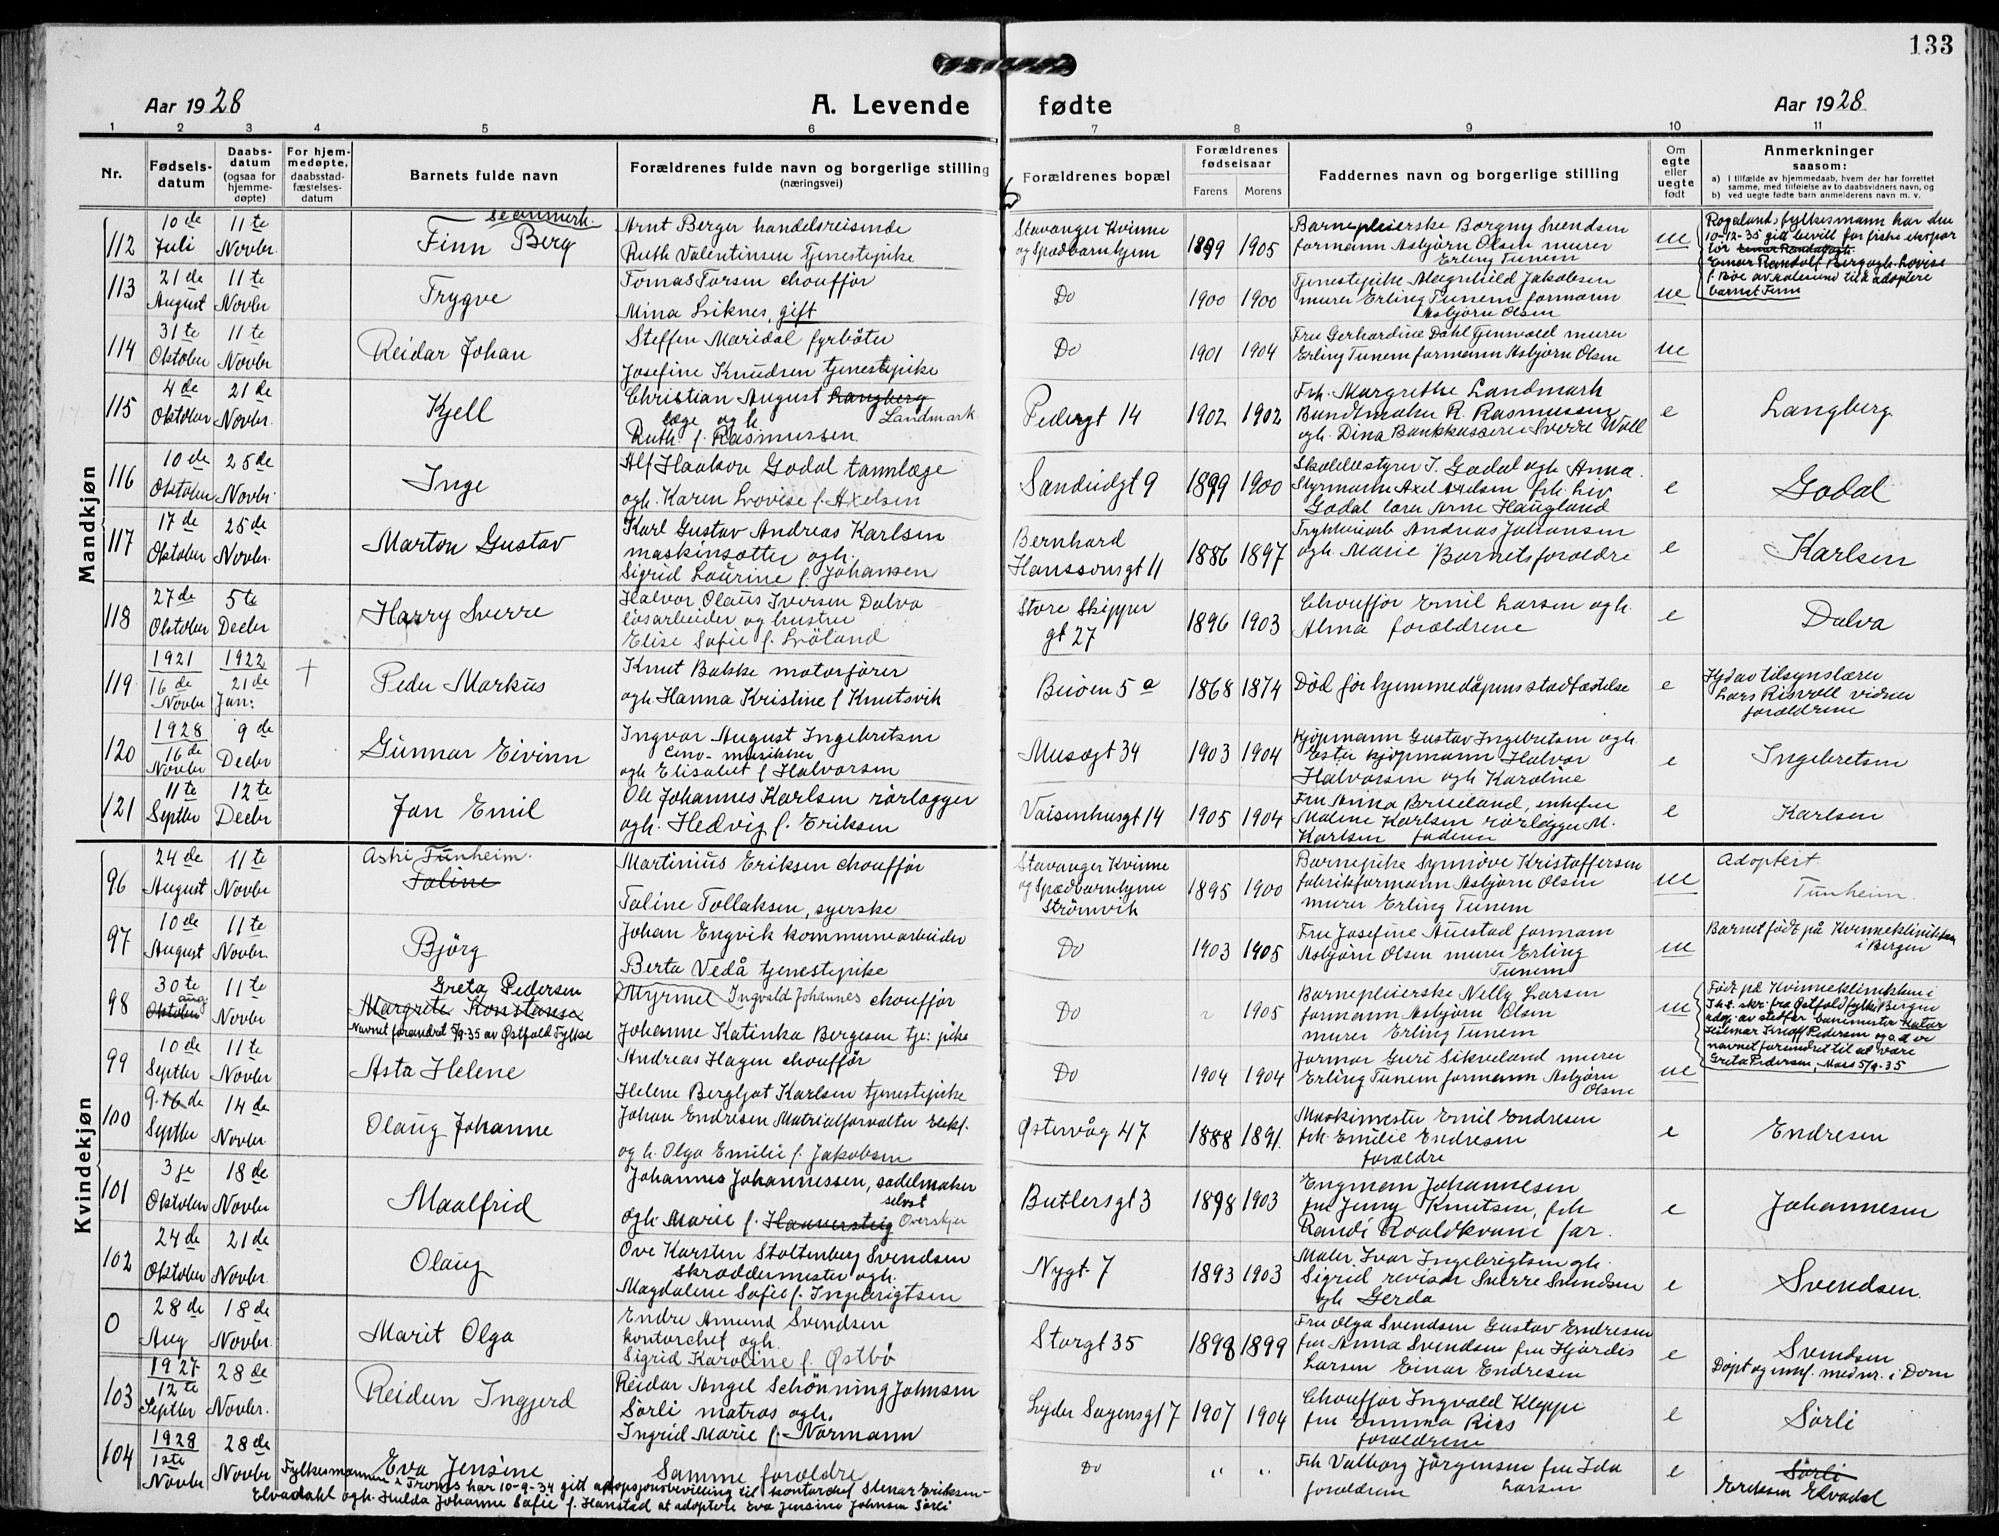 133
Aar 1928 A. Levende fødte Aar 1928
1 2 3 4 5 6 7 8 9 10 11
Nr. Fødsels-datum Daabs-datum (ogsaa for hjemme-døpte) For hjem-medøpte, daabsstad-fæstelses-datum Barnets fulde navn Forældrenes fulde navn og borgerlige stilling (næringsvei) Forældrenes bopæl Forældrenes fødselsaar Farens Morens Faddernes navn og borgerlige stilling Om egte eller uegte født Anmerkninger saasom:
a) I tilfælde av hjemmedaab, hvem der har forrettet samme, med tilføielse av to daabsvidners navn, og
b) ved uegte fødte barn anmelderens navn m. v.
Mandkjøn
112 10de Juli 11te Novbr Finn Berg se anmerk.
Arnt Berger handelsreisende
Ruth Valentinsen tjenestepike
Stavanger Kvinne og Spædbarnhjem 1899 1905
Barnepleierske Borgny Svendsen
formann Asbjørn Olsen murer
Erling Tunem
ue
Rogalands fylkesmann har den
10-12-35 gitt bevill for
Einar Randolf Berg ogh. Lovise
f. Bøe til å adoptere
barnet Finn
113 21de August 11te Novbr Trygve
Tomas Torsen chouffør
Mina Liknes, gift
Do 1900 1900
Tjenestepike Magnhild Jakobsen
murer Erling Tunem formann
Asbjørn Olsen
ue
114 31te Oktober 11te Novbr Reidar Johan
Steffen Maridal fyrbøter
Josefine Knudsen tjenestepike
Do 1901 1904
Fru Gerhardine Dahl Tjennvold murer
Erling Tunem formann Asbjørn Olsen
ue
115 4de Oktober 21de Novbr. Kjell
Christian August Langberg Landmark
læge og h.
Ruth f. Rasmussen
Pedersgt 14 1902 1902
Frk. Margrethe Landmark
Bundtmaker R. Rasmussen
ogh. Dina Bankkasserer Sverre Woll
e Langberg
116 10de Oktober 25de Novbr. Inge
Alf Haakon Godal tannlæge
ogh. Karen Lovise f. Axelsen
Sandvigt 9 1899 1900
Skolebestyrer T. Godal ogh Anna.
Styrmann Axel Axelsen frk. Liv
Godal lærer Arne Haugland
e Godal
117 17de Oktober 25de Novbr. Marton Gustav
Karl Gustav Andreas Karlsen
maskinsætter ogh.
Sigrid Laurine f. Johansen
Bernhard Hanssonsgt 11 1886 1897
Andreas Johansen
ogh. Marie Barnetsforældre
e Karlsen
118 27de Oktober 5te Decbr Harry Sverre
Halvor Olaus Iversen Dalva
løsarbeider og hustru
Elise Sofie f. Löland
Store Skipper gt 27 1896 1903
Chouffør Emil Larsen ogh.
Alma forældrene
e Dalva
119 1921 16de Novbr 1922 21de Jan: † Peder Markus
Knut Bakke motorfører
ogh. Hanna Kristine f Knutsvik
Beiöen 5a 1868 1874
Død før hjemmedåpens stadfæstelse
e
Hjd av tilsynslærer
Lars Risvoll vidner
forældrene
120 1928 16de Novbr 9de Decbr Gunnar Eivinn
Ingvar August Ingebritsen
Cino-musikker
ogh Elisabet f Halvorsen
Musegt 34 1903 1904
Kjøpmann Gustav Ingebretsen ogh.
Ester kjøpmann Halvor
Halvorsen ogh Karoline
e Ingebretsen
121 11te Septbr 12te Decbr Jan Emil
Ole Johannes Karlsen rørlægger
ogh. Hedvig f. Eriksen
Vaisenhusgt 14 1905 1904
Fru Anna Brueland, enkefru
Maline Karlsen rørlægger M.
Karlsen faderen
e Karlsen
Kvindekjøn
96 24de August 11te Novbr Astri Tunheim. Taline
Martinius Eriksen chouffør
Taline Tollaksen, syerske
Stavanger Kvinne og Spædbarnhjem Strømvik 1895 1900
Barnepike Synnøve Kristoffersen
fabrikformann Asbjørn Olsen
murer Erling Tunem
ue Adoptert Tunheim.
97 10de August 11te Novbr Bjørg
Johan Engvik kommunearbeider
Berta Vedå tjenestepike
Do 1903 1905
Fru Josefine Auestad formann
Asbjørn Olsen murer Erling
Tunem
ue
Barnet født på Kvinneklinikken
i Bergen
98 30te Oktober aug 11te Novbr Greta Pedersen
Margrete Konstanse
Navnet forandret 5/9-35 av Østfold Fylke
Myrmel Ingvald Johannes chouffør
Johanne Katinka Bergesen tje: pike
Do " 1905
Barnepleierske Nelly Larsen
formann Asbjørn Olsen
murer Erling Tunem
ue
Født på Kvinneklinikken i Bergen
I h.t. skr. fra Østfold fylke
adp. av stefar banemester
Hilmar Pedersen og d er
navnet forandret til at være
Greta Pedersen, Moss 5/9-35
99 10de Septbr 11te Novbr Asta Helene
Andreas Hagen chouffør
Helene Bergljot Karlsen tjenestepike
Do 1904 1904
Jormor Guri Sikveland murer
Erling Tunem formann Asbjørn
Olsen
ue
100 9.16de Septbr 14de Novbr. Olaug Johanne
Johan Endresen Matrialforvalter Elekt.
og h. Olga Emilie f. Jakobsen
Østervåg 47 1888 1891.
Maskinmester Emil Endresen
frk. Emilie Endresen
forældre
e Endresen
101 3je Oktober 18de Novbr. Maalfrid
Johannes Johannessen, sadelmaker selvst
ogh. Marie f. Haaversteig Overskjei
Butlersgt 3 1898 1903
Engmann Johannesen
fru Jenny Knutsen, frk
Randi Roaldkvam far.
e Johannesen
102 24de Oktober 21de Novbr. Olaug
Ove Karsten Stoltenberg Svendsen
Skræddermester ogh.
Magdalene Sofie f. Ingebrigtsen
Nygt 7 1893 1903
Maler Ivar Ingebrigtsen ogh.
Sigrid revisor Sverre Svendsen
ogh Gerda
e Svendsen.
0 28de Aug 18de Novbr. Marit Olga
Endre Amund Svendsen
kontorchef ogh.
Sigrid Karoline f. Østbø
Storgt 35 1898 1899
Fru Olga Svendsen Gustav Endresen
fru Anna Svendsen fru Hjørdis
Larsen Einar Endresen
e Svendsen
Døpt og innf. med nr. i Dom
103 1927 12te Septbr 28de Novbr. Reidun Ingjerd
Reidar Angel Schönning Johnsen
Sørli matros ogh.
Ingrid Marie f. Normann
Lyder Sagensgt 7 1907 1904
Chouffør Ingvald Kleppe
fru Emma Ries
forældrene
e Sørli
104 1928 1ste Novbr 28de Novbr Eva Jensine
Samme forældre
Do " "
Frk Valborg Jørgensen fru Ida
forældrene Larsen
e Sørli
Eriksen Elvadal
Fylkesmannen i Troms har 10-9-34 gitt adopsjonsbevilling til kontorchef Steinar Eriksen-
Elvadahl ogh. Hulda Johanne Sofie f. Hanstad at adoptere Eva Jensine Johnsen Sørli